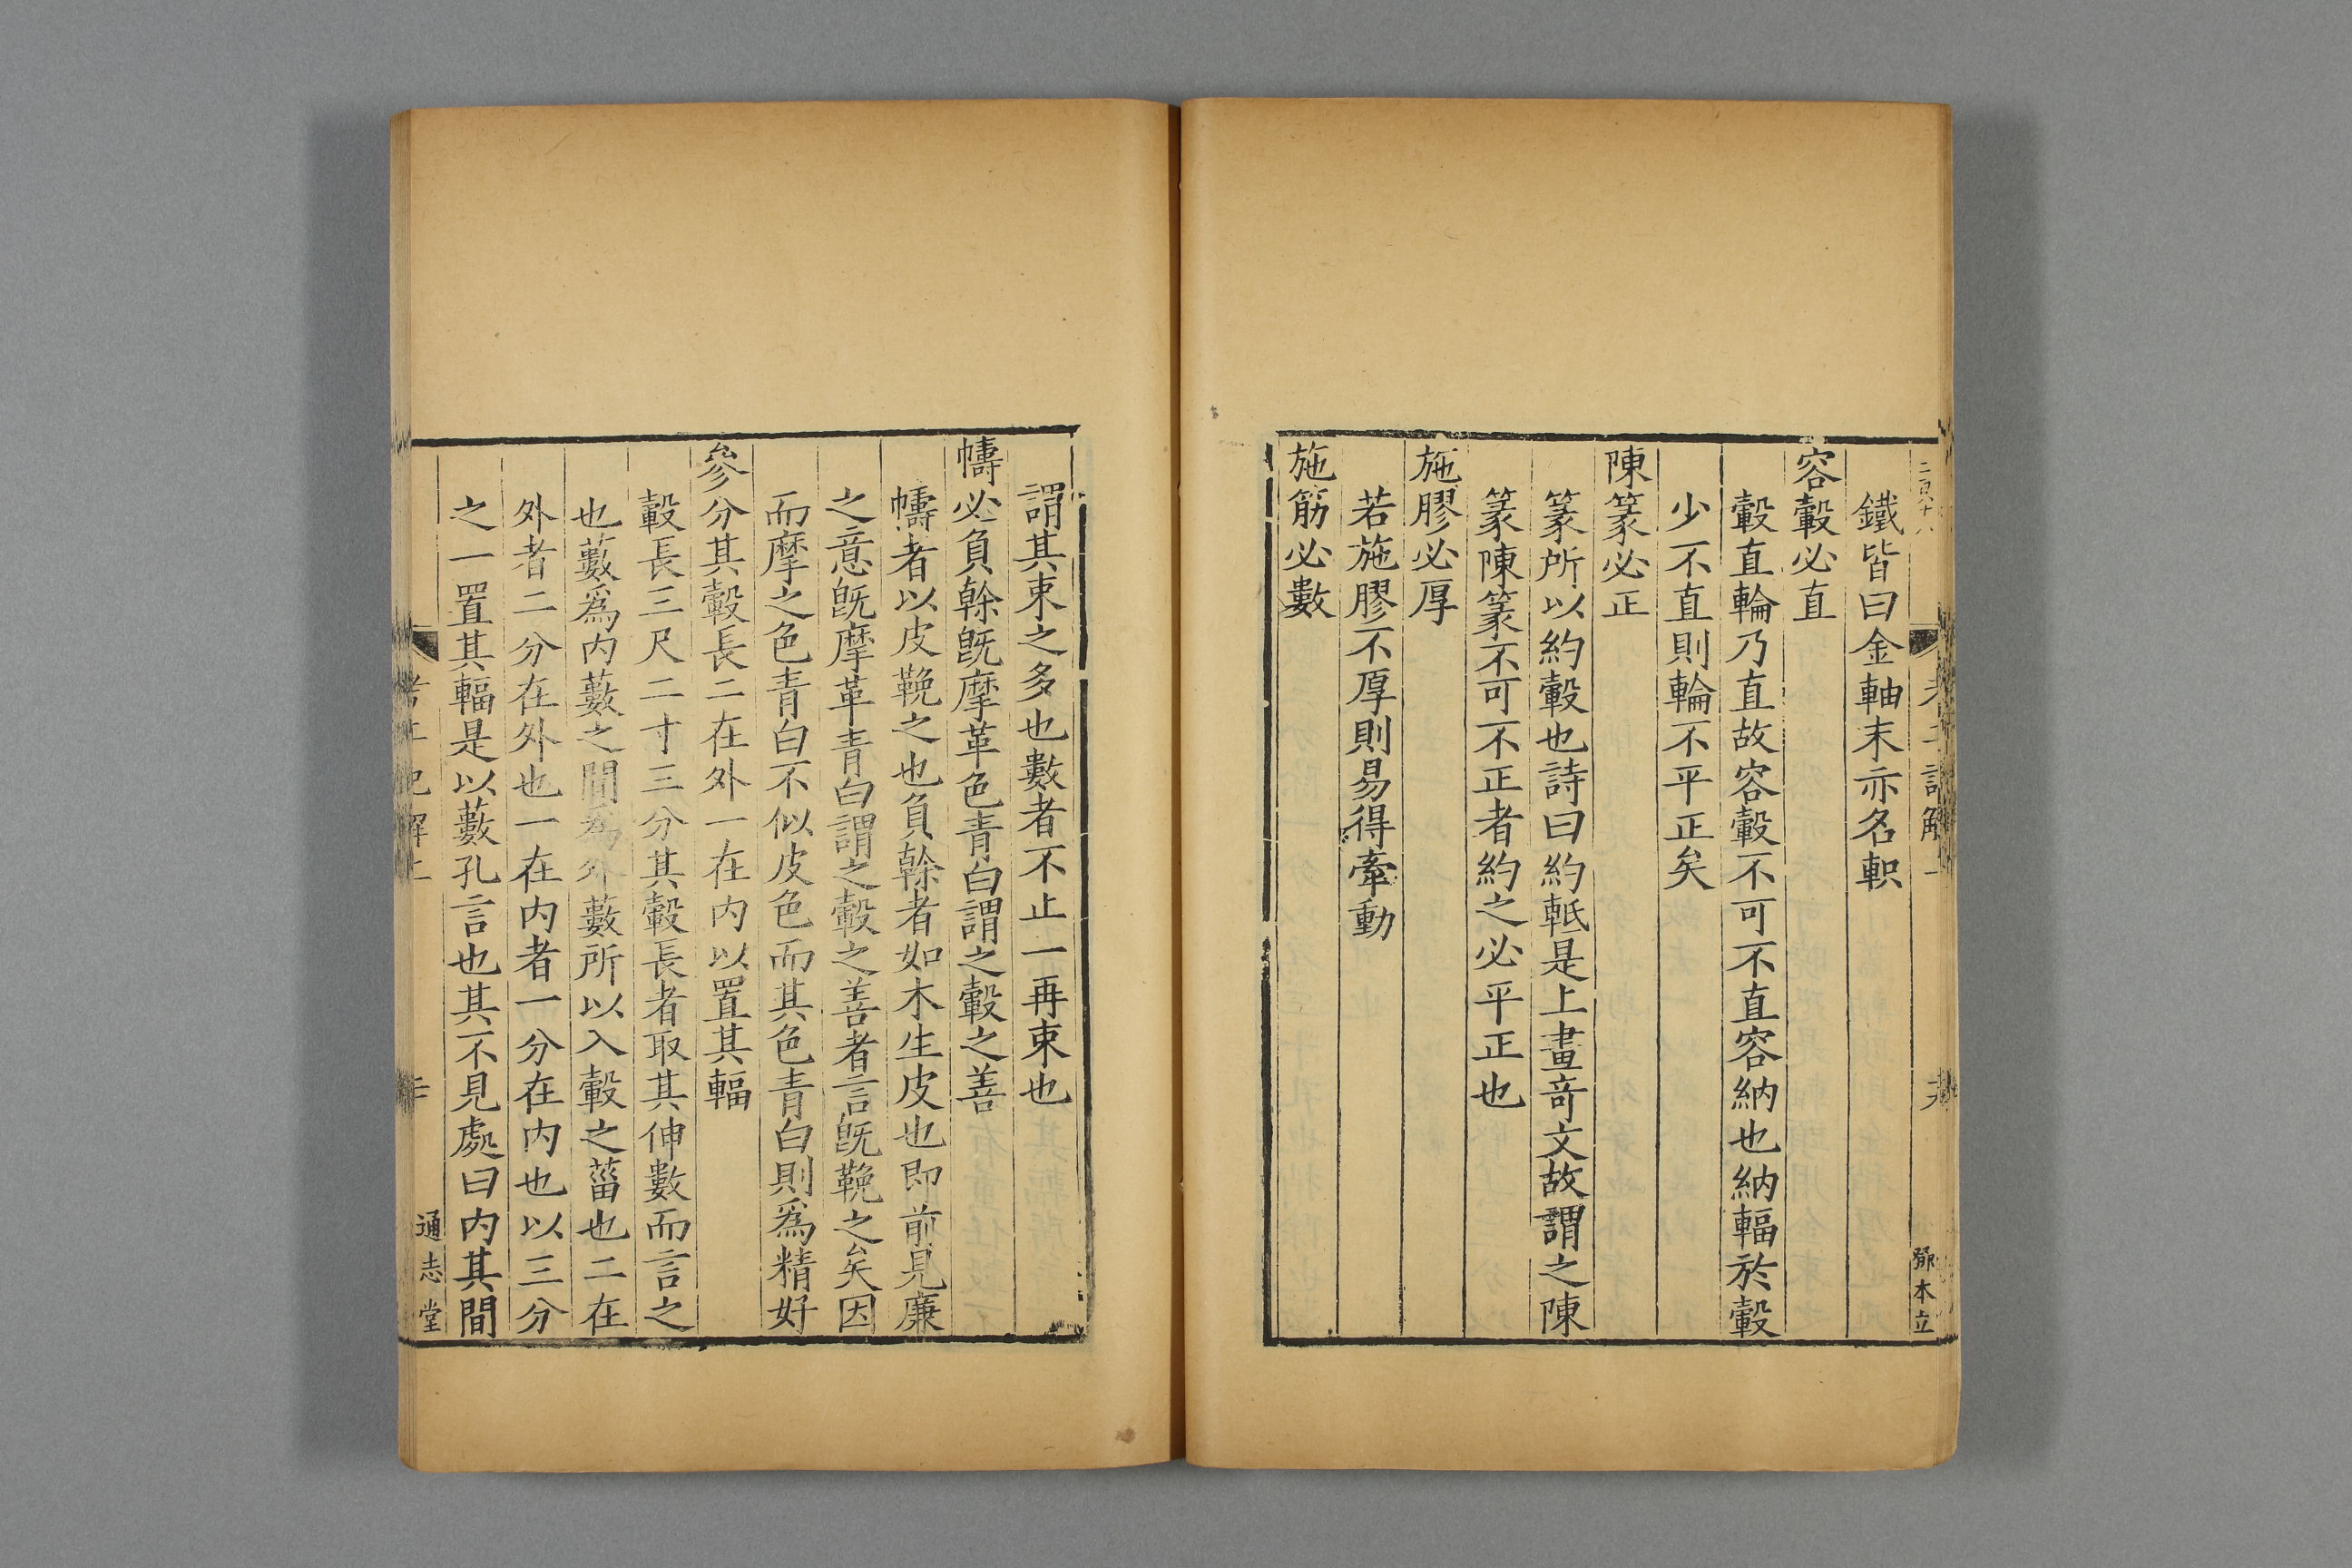 鐵皆曰金軸末亦名軹
容轂必直
轂直輪乃直故容轂不可不直容納也納輻於轂
少不直則輪不平正矣
陳篆必正
篆所以約轂也詩曰約軧是上畫竒文故謂之陳
篆陳篆不可不正者約之必平正也
施膠必厚
若施膠不厚則易得牽動
施筋必數
鄧本立
謂其束之多也數者不止一再束也
幬必負幹旣摩革色青白謂之轂之善
幬者以皮鞔之也負幹者如木生皮也即前見廉
之意旣摩革青白謂之轂之善者言旣鞔之矣因
而摩之色青白不似皮色而其色青白則爲精好
參分其轂長二在外一在内以置其輻
轂長三尺二寸三分其轂長者取其伸數而言之
也藪爲内藪之間爲外藪所以入轂之菑也二在
外者二分在外也一在内者一分在内也以三分
之一置其輻是以藪孔言也其不見處曰内其間
通志堂